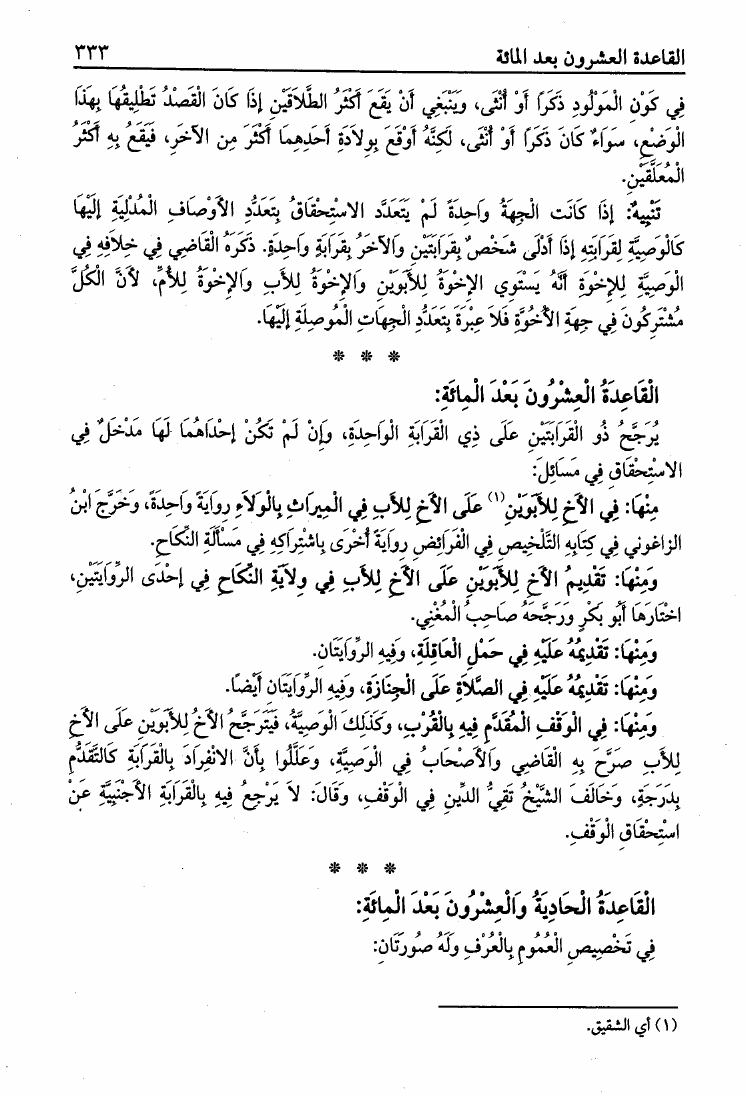 القاعدة العشرون بعد المائة ٣٣٣
فِي كَوْنِ الْمَوْلُودِ ذَكَرًا أَوْ أُنْثَى، وَيَنْبَغِي أَنْ يَقَعَ أَكْثَرُ الطَّلَاقَيْنِ إِذَا كَانَ الْقَصْدُ تَطْلِيقُهَا بِهَذَا
الْوَضْعِ، سَوَاءٌ كَانَ ذَكَرًا أَوْ أُنْثَى، لَكِنَّهُ أَوْقَعَ بِوِلَادَةِ أَحَدِهِمَا أَكْثَرَ مِنَ الآخَرِ، فَيَقَعُ بِهِ أَكْثَرُ
الْمُعَلَّقَيْنِ.
تَنْبِيهٌ: إِذَا كَانَتِ الْجِهَةُ وَاحِدَةً لَمْ يَتَعَدَّدِ الاسْتِحْقَاقُ بِتَعَدُّدِ الأَوْصَافِ الْمُدْلِيَةِ إِلَيْهَا
كَالْوَصِيَّةِ لِقَرَابَتِهِ إِذَا أَدْلَى شَخْصٌ بِقَرَابَتَيْنِ وَالآخَرُ بِقَرَابَةٍ وَاحِدَةٍ. ذَكَرَهُ الْقَاضِي فِي خِلَافِهِ فِي
الْوَصِيَّةِ لِلإِخْوَةِ أَنَّهُ يَسْتَوِي الإِخْوَةُ لِلأَبَوَيْنِ وَالإِخْوَةُ لِلأَبِ وَالإِخْوَةُ لِلأُمِّ، لأَنَّ الْكُلَّ
مُشْتَرِكُونَ فِي جِهَةِ الأُخُوَّةِ فَلَا عِبْرَةَ بِتَعَدُّدِ الْجِهَاتِ الْمُوصِلَةِ إِلَيْهَا.
* * *
الْقَاعِدَةُ الْعِشْرُونَ بَعْدَ الْمِائَةِ:
يُرَجَّحُ ذُو الْقَرَابَتَيْنِ عَلَى ذِي الْقَرَابَةِ الْوَاحِدَةِ، وَإِنْ لَمْ تَكُنْ إِحْدَاهُمَا لَهَا مَدْخَلٌ فِي
الاسْتِحْقَاقِ فِي مَسَائِلَ:
مِنْهَا: فِي الأَخِ لِلأَبَوَيْنِ(١) عَلَى الأَخِ لِلأَبِ فِي الْمِيرَاثِ بِالْوَلَاءِ رِوَايَةً وَاحِدَةً، وَخَرَّجَ ابْنُ
الزاغوني فِي كِتَابِهِ التَّلْخِيصِ فِي الْفَرَائِضِ رِوَايَةً أُخْرَى بِاشْتِرَاكِهِ فِي مَسْأَلَةِ النِّكَاحِ.
وَمِنْهَا: تَقْدِيمُ الأَخِ لِلأَبَوَيْنِ عَلَى الأَخِ لِلأَبِ فِي وِلَايَةِ النِّكَاحِ فِي إِحْدَى الرِّوَايَتَيْنِ،
اخْتَارَهَا أَبُو بَكْرٍ وَرَجَّحَهُ صَاحِبُ الْمُغْنِي.
وَمِنْهَا: تَقْدِيمُهُ عَلَيْهِ فِي حَمْلِ الْعَاقِلَةِ، وَفِيهِ الرِّوَايَتَانِ.
وَمِنْهَا: تَقْدِيمُهُ عَلَيْهِ فِي الصَّلَاةِ عَلَى الْجِنَازَةِ، وَفِيهِ الرِّوَايَتَانِ أَيْضًا.
وَمِنْهَا: فِي الْوَقْفِ الْمُقَدَّمِ فِيهِ بِالْقُرْبِ، وَكَذَلِكَ الْوَصِيَّةُ، فَيَتَرَجَّحُ الأَخُ لِلأَبَوَيْنِ عَلَى الأَخِ
لِلأَبِ صَرَّحَ بِهِ الْقَاضِي وَالأَصْحَابُ فِي الْوَصِيَّةِ، وَعَلَّلُوا بِأَنَّ الانْفِرَادَ بِالْقَرَابَةِ كَالتَّقَدُّمِ
بِدَرَجَةٍ، وَخَالَفَ الشَّيْخُ تَقِيُّ الدِّينِ فِي الْوَقْفِ، وَقَالَ: لَا يَرْجِعُ فِيهِ بِالْقَرَابَةِ الأَجْنَبِيَّةِ عَنْ
اسْتِحْقَاقِ الْوَقْفِ.
* * *
الْقَاعِدَةُ الْحَادِيَةُ وَالْعِشْرُونَ بَعْدَ الْمِائَةِ:
فِي تَخْصِيصِ الْعُمُومِ بِالْعُرْفِ وَلَهُ صُورَتَانِ:
(١) أي الشقيق.